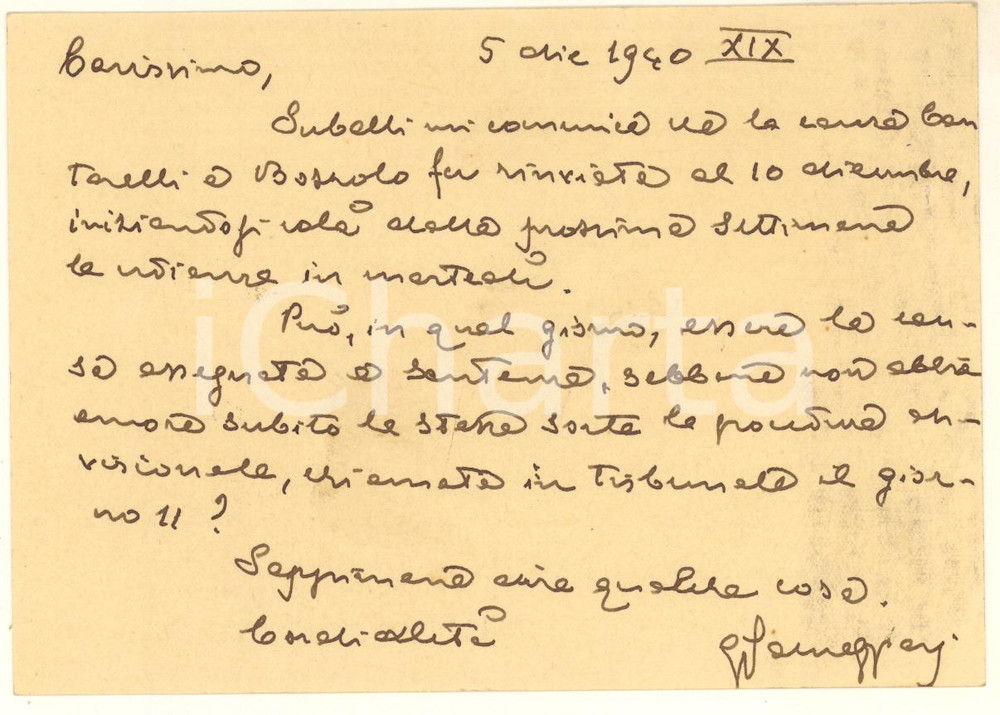 5 dic 1940 XIX
Carissimo,
Subelli mi comunica che la causa Can
tarelli e Bozzolo fu rinviata al 10 dicembre,
iniziandosi colà dalla prossima settimana
le udienze in martedì.
Può, in quel giorno, essere la cau-
sa assegnata a sentenza, sebbene non abbia
ancora subito la stessa sorte la procedura
visionale, chiamata in Tribunale il gior-
no 11?
Sappimene dire qualche cosa.
Cordialità
iCharta